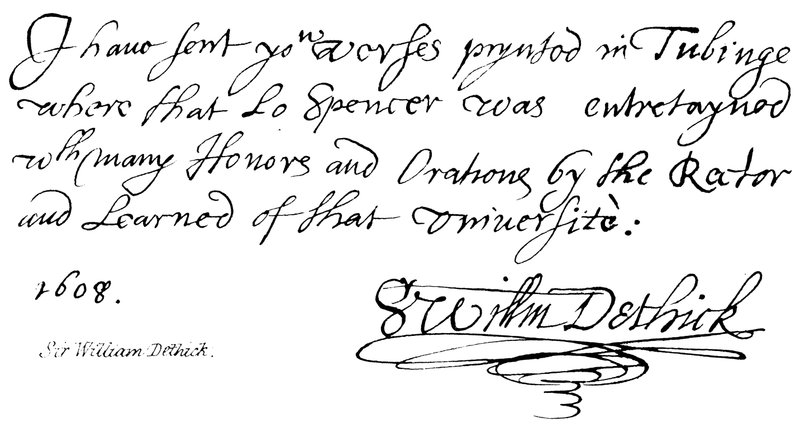 I haue sent yow verses prynted in Tubinge
where that Lo Spencer was entretayned
wth many Honors and Orations by the Rector
and Learned of that vniuersitè:
1608.
S Willm Dethick
Sir William Dethick.